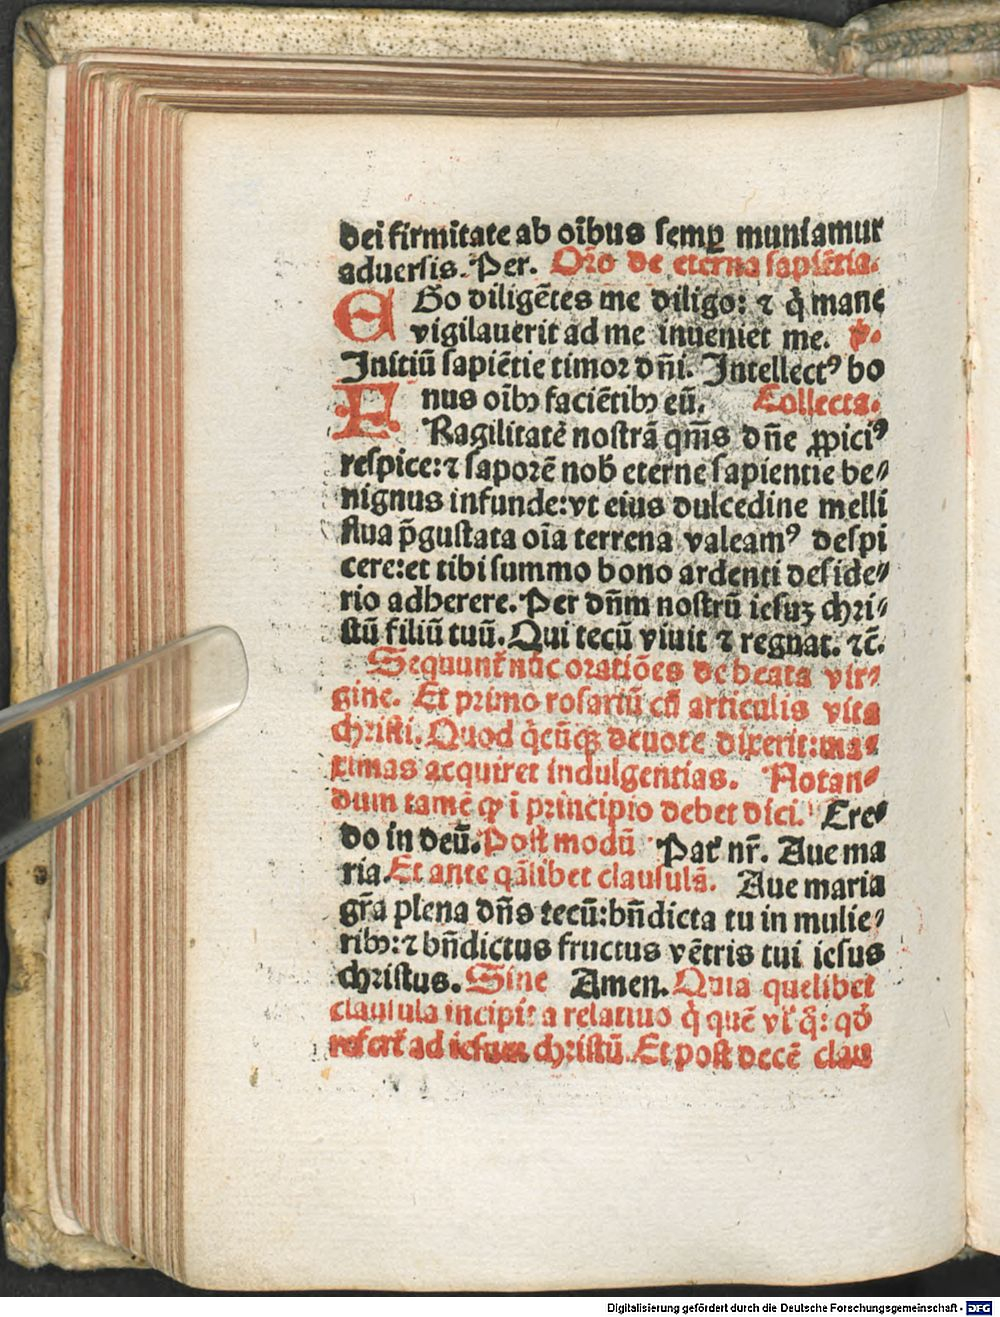 dei firmitate ab oı̃bus semꝑ muniamur
aduersis. Per. Orõ de eterna sapiẽtia.
EGo diligẽtes me diligo: ⁊ q̃ mane
vigilauerit ad me inueniet me. ꝟ.
Initiũ sapiẽtie timoꝛ dñi. Intellectꝰ bo
nus oı̃bꝫ faciẽtibꝫ eũ. Collecta.
FRagilitatẽ nostrã qm̃s dñe ꝓpiciꝰ
respice: ⁊ saporẽ nob̃ eterne sapientie be⸗
nignus infunde: vt eius dulcedine melli
flua p̃gustata oı̃a terrena valeamꝰ despi
cere: et tibi summo bono ardenti deside⸗
rio adherere. Per dñm nostrũ iesuꝫ chꝛi⸗
stũ filiũ tuũ. Qui tecũ viuit ⁊ regnat. ⁊c̃.
Sequunt᷑ nũc oratiões de beata vir⸗
gine. Et primo rosariũ cũ articulis vita
chꝛisti. Quod q̃cũqꝫ deuote dixerit: ma⸗
ximas acquiret indulgentias. Notan⸗
dum tamẽ ꝙ ĩ principio debet dici. Cre⸗
do in deũ. Post modũ Pat᷑ nr̃. Aue ma
ria. Et ante q̃libet clausulã. Aue maria
gr̃a plena dñs tecũ: bñdicta tu in mulie⸗
ribꝫ: ⁊ bñdictus fructus vẽtris tui iesus
chꝛistus. Sine Amen. Quia quelibet
clausula incipit᷑ a relatiuo q̃ quẽ vl᷑ q̃: qď
refert᷑ ad iesum chꝛistũ. Et post decẽ clau
Digitalisierung gefördert durch die Deutsche Forschungsgemeinschaft - DFG